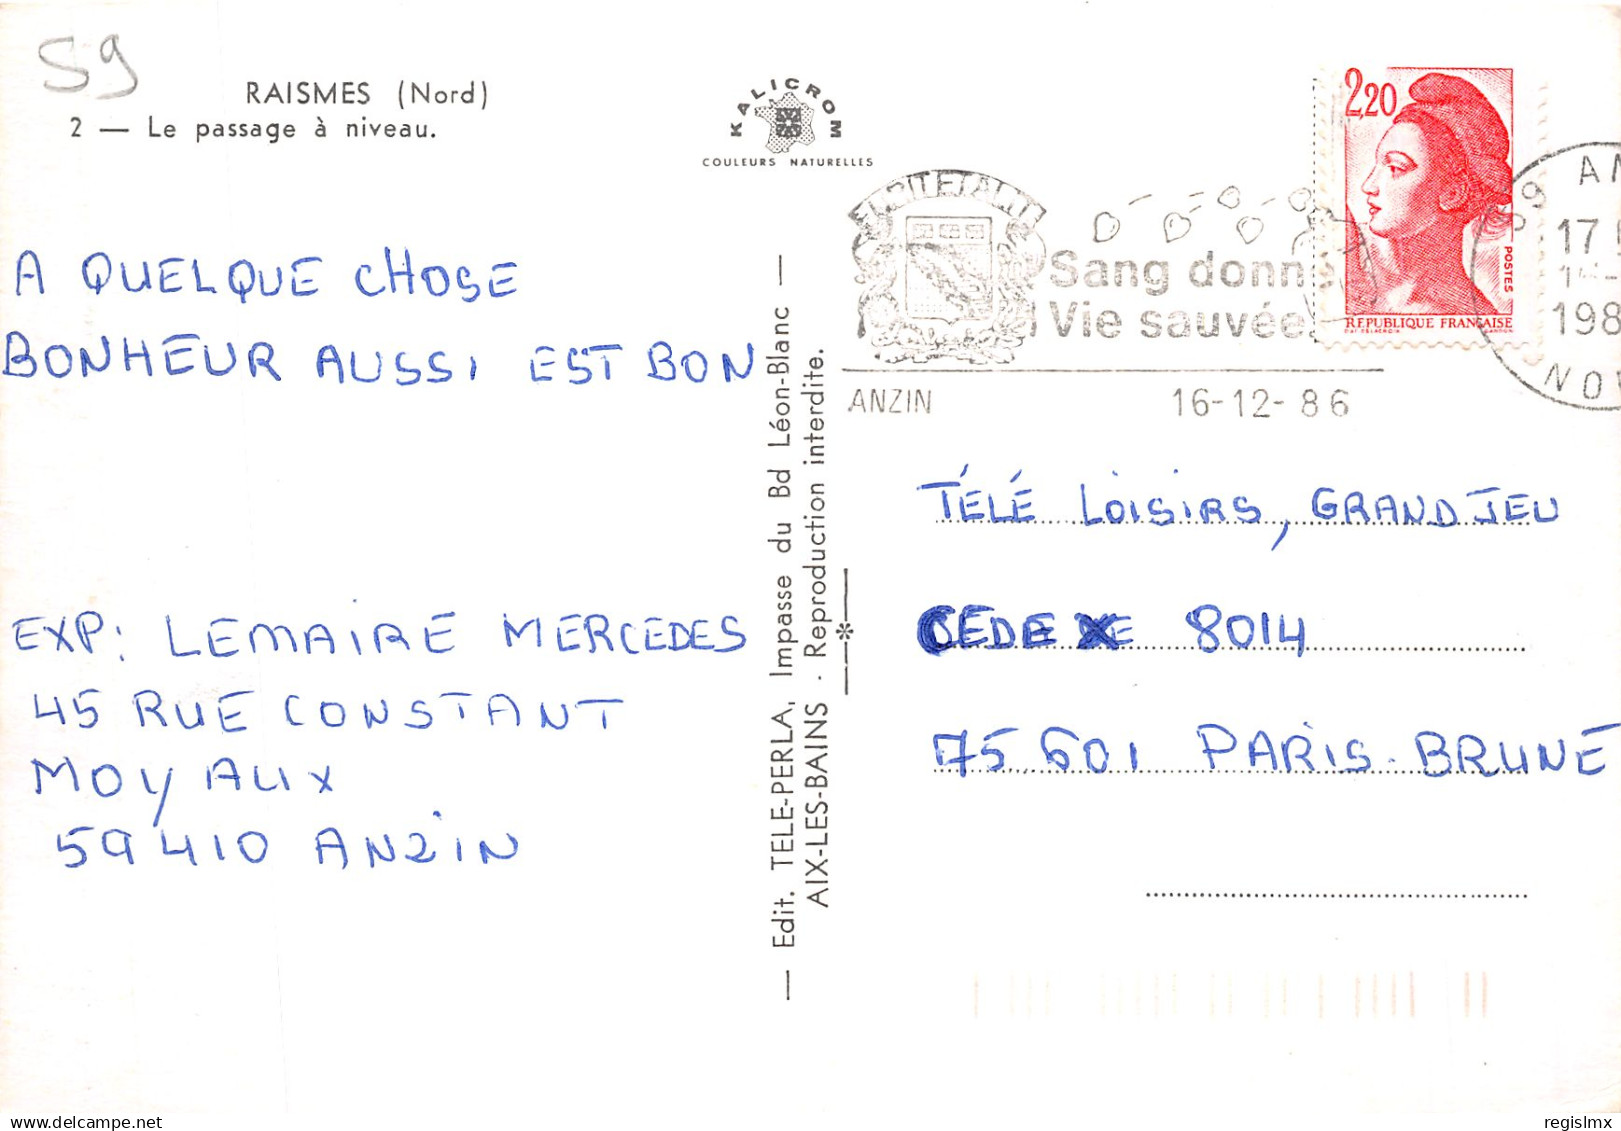 59
RAISMES (Nord)
2 — Le passage à niveau.
KALICROM
COULEURS NATURELLES
2,20
POSTES
REPUBLIQUE FRANÇAISE
59 AN
17 
198
NOV
Sang donn
Vie sauvée
ANZIN 16-12-86
A QUELQUE CHOSE
BONHEUR AUSSI EST BON
EXP: LEMAIRE MERCEDES
45 RUE CONSTANT
MOYAUX
59410 ANZIN
— Edit. TELE-PERLA, Impasse du Bd Léon-Blanc —
AIX-LES-BAINS - Reproduction interdite.
TÉLÉ LOISIRS, GRAND JEU
CEDEX 8014
75,601 PARIS-BRUNE
regislmx